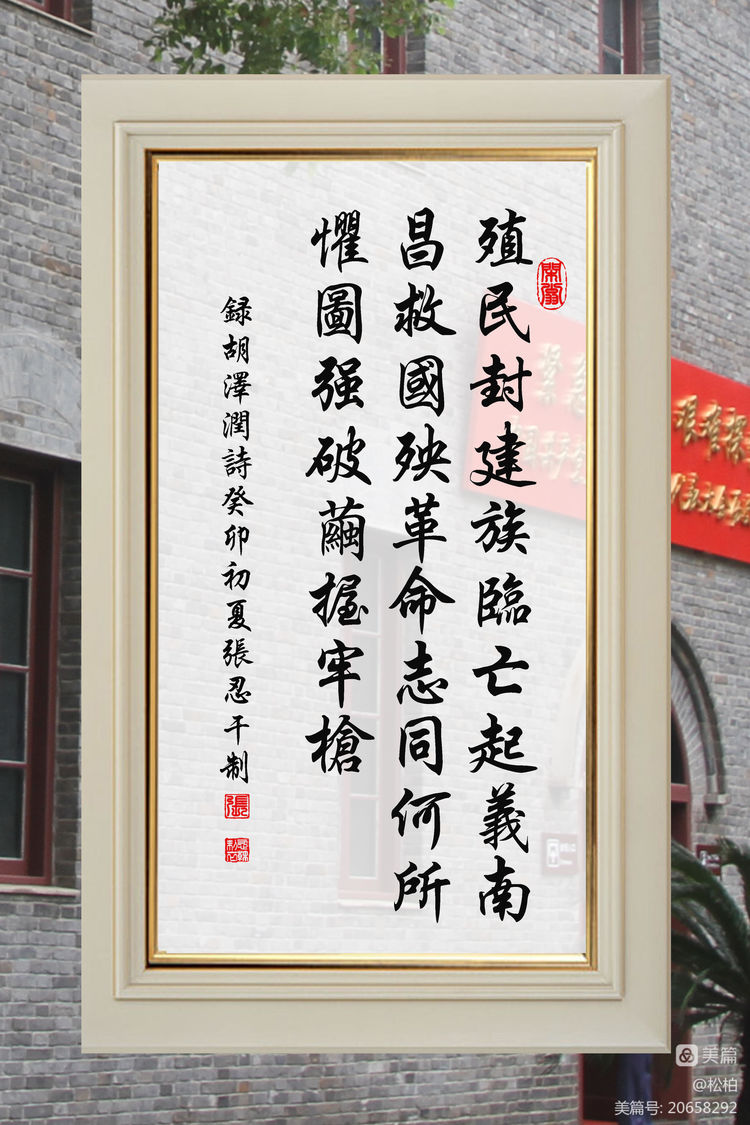 殖民封建族臨亡起義南
昌救國殃革命志同何所
懼圖强破繭握牢槍
録胡澤潤詩癸卯初夏張忍干制
張
美篇
@松柏
美篇号: 20658292